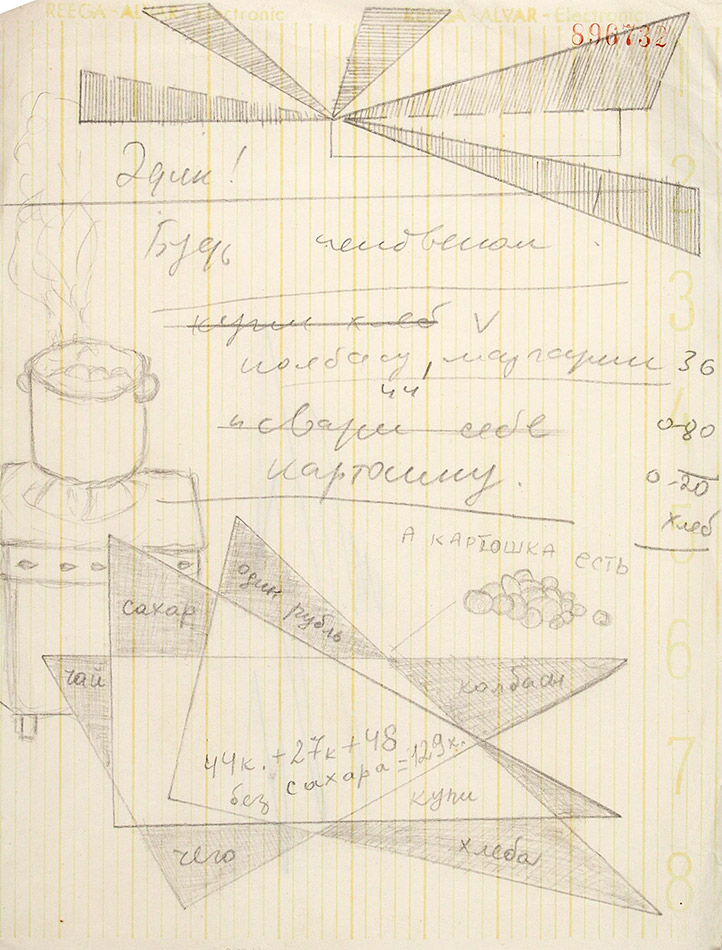 REEGA - ALVAR - Electronic REEGA - ALVAR - Electronic
896732
1
2
Эдик!
Будь человеком
3
купи хлеб V
колбасу, маргарин 36
44
4
и свари себе 0-80
картошку. 0-20
хлеб
5
А КАРТОШКА ЕСТЬ
один рубль
сахар
6
чай
колбасы
7
44к. + 27к + 48
без сахара = 129к.
купи
чего
хлеба
8